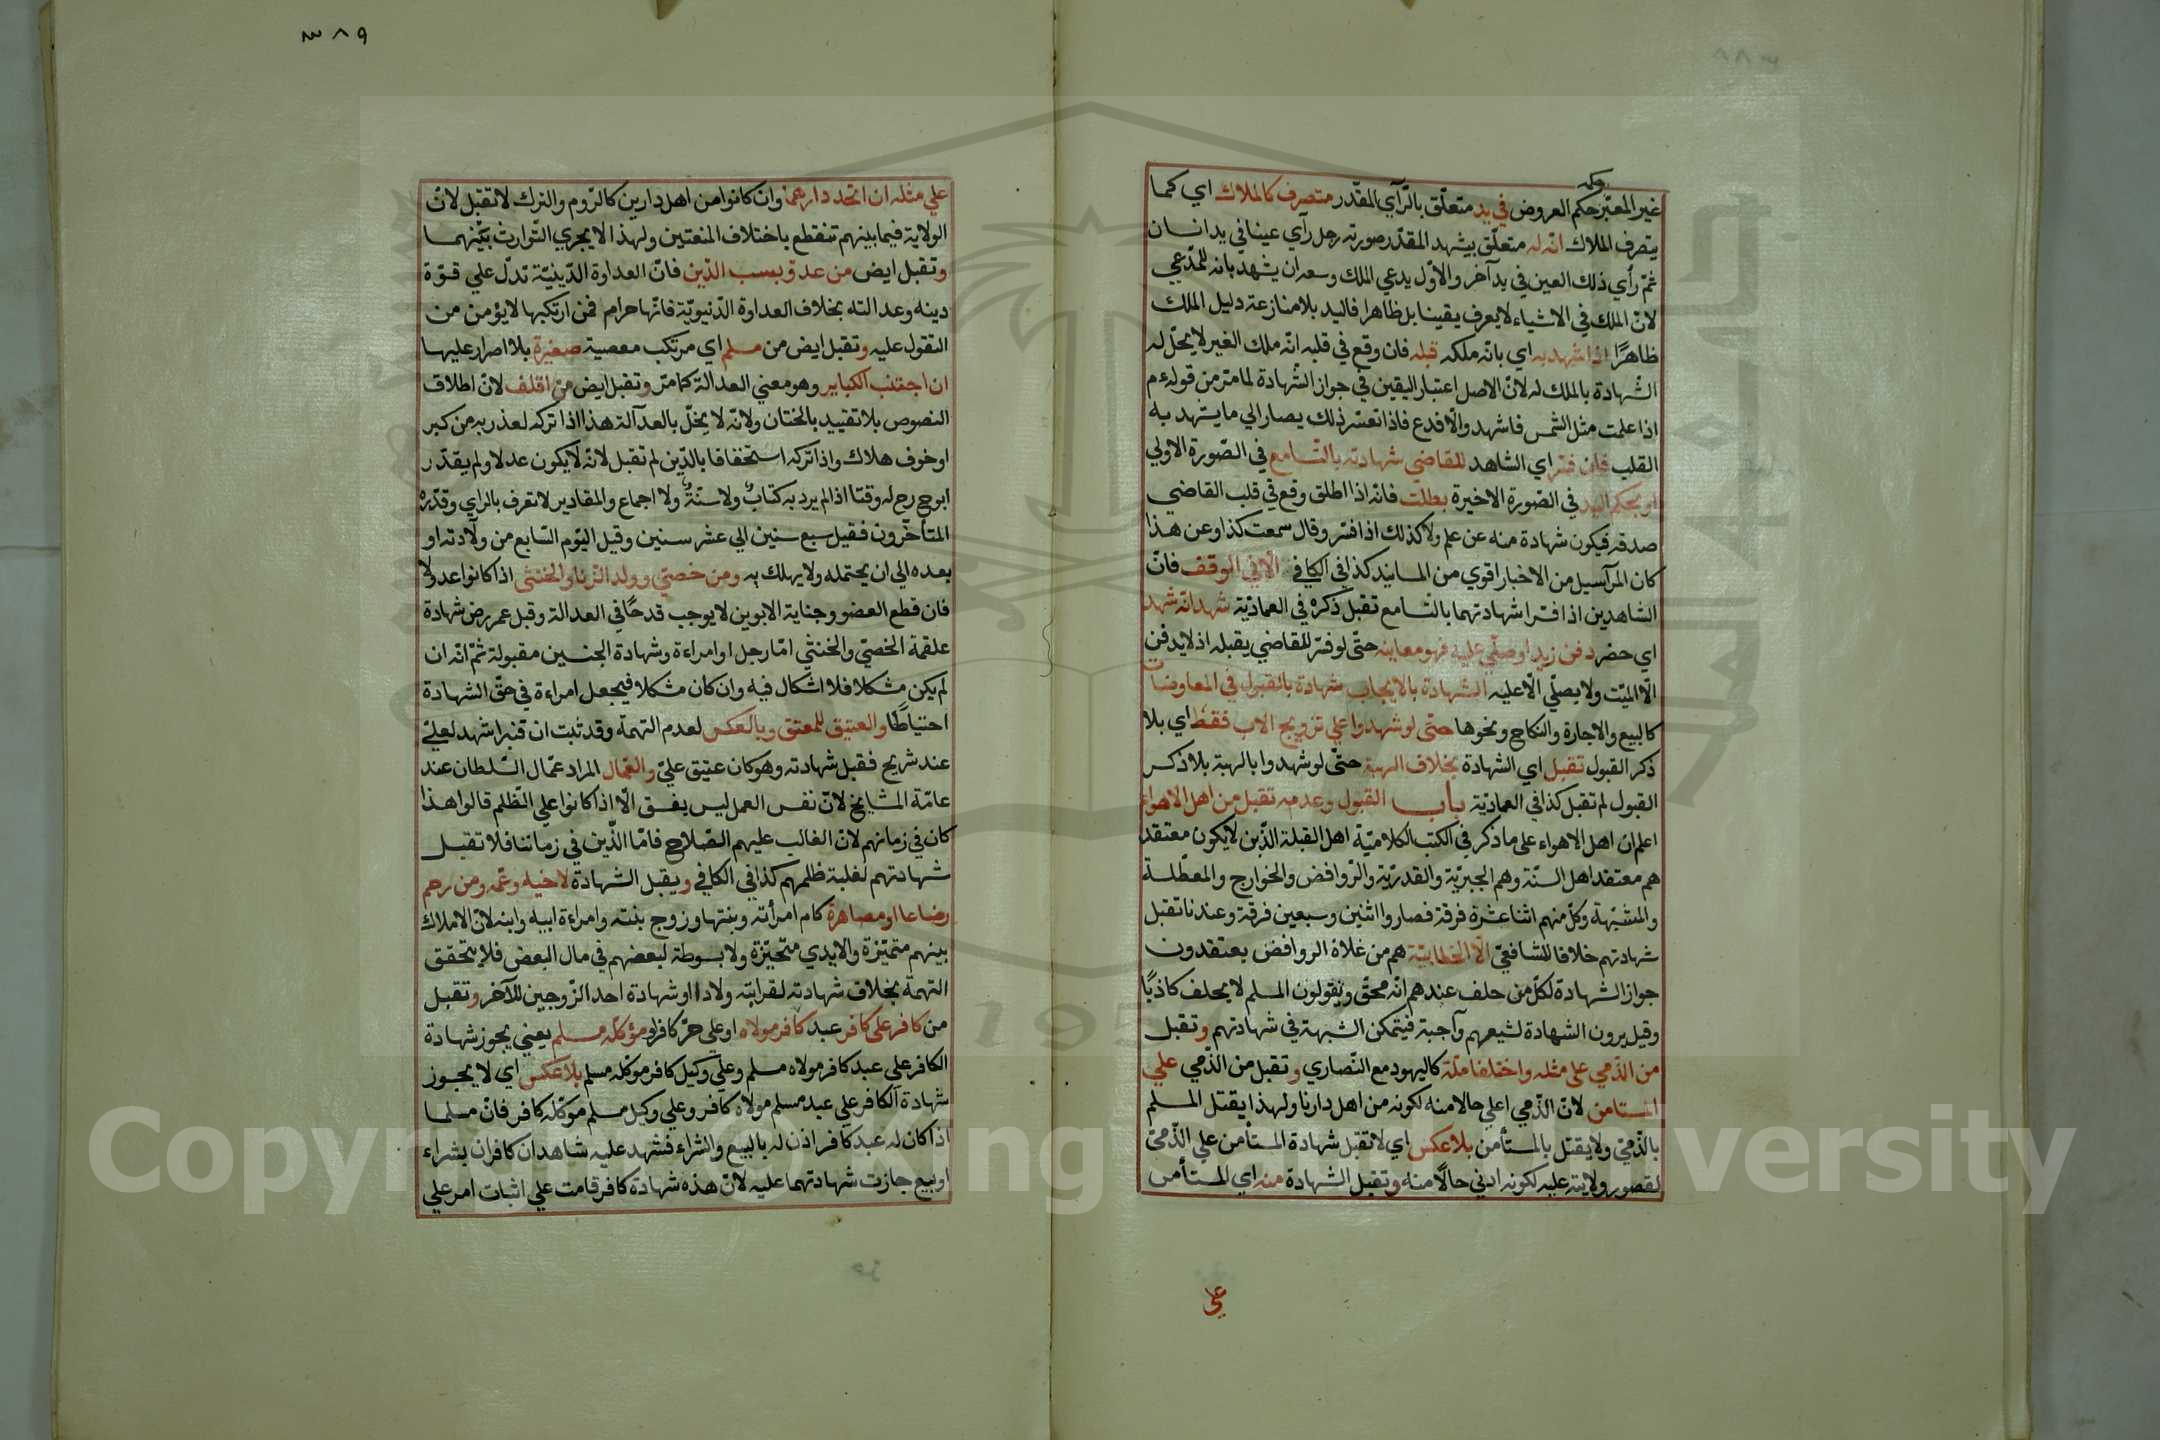 ٣٨٨
وكه
غير المعبّر حكم العروض في يد متعلّق بالرّأي المقدّر متصرف كالملاك اي كما
يتصرف الملاك انّه له متعلّق بيشهد المقدّر صورته رجل رآي عينا في يد انسان
ثمّ رأي ذلك العين في يد آخر والاوّل يدعي الملك وسعه ان يشهد بانه للمدّعي
لانّ الملك في الاشياء لا يعرف يقينا بل ظاهرا فاليد بلا منازعة دليل الملك
ظاهرًا اذا شهد به اي بانّه ملكه قبله فان وقع في قلبه انّه ملك الغير لا يحلّ له
الشّهادة بالملك له لانّ الاصل اعتبار اليقين في جواز الشّهادة لما مرّ من قوله ءم
اذا علمت مثل الشّمس فاشهد والّا فدع فاذا تعسّر ذلك يصار الي ما يشهد به
القلب فان فسّر اي الشاهد للقاضي شهادته بالتّسامع في الصّورة الاولي
او بحكم اليد في الصّورة الاخيرة بطلت فانّه اذا اطلق وقع في قلب القاضي
صدقه فيكون شهادة منه عن علم ولا كذلك اذا فسّر وقال سمعت كذا وعن هذا
كان المرآسيل من الاخبار اقوي من المسانيد كذا في الكافي الّا في الوقف فانّ
الشاهدين اذا فسّرا شهادتهما بالتّسامع تقبل ذكره في العماديّة شهد انّه شهد
اي حضر دفن زيد او صلّي عليه فهو معاينة حتّي لو فسّر للقاضي يقبله اذ لا يدفن
الّا الميّت ولا يصلّي الّا عليه الشّهادة بالايجاب شهادة بالقبول في المعاوضات
كالبيع والاجارة والنكاح ونحوها حتّي لو شهدوا علي تزويج الاب فقط اي بلا
ذكر القبول تقبل اي الشهادة بخلاف الهبة حتّي لو شهدوا بالهبة بلا ذكر
القبول لم تقبل كذا في العماديّة باب القبول وعدمه تقبل من اهل الاهواء
اعلم انّ اهل الاهواء علي ما ذكر في الكتب الكلاميّة اهل القبلة الذّين لا يكون معتقد
هم معتقد اهل السنّة وهم الجبريّة والقدريّة والرّوافض والخوارج والمعطّلة
والمشبّهة وكلّ منهم اثنا عشرة فرقة فصاروا اثنين وسبعين فرقة وعندنا تقبل
شهادتهم خلافا للشافعيّ الّا الخطابيّة هم من غلاة الروافض يعتقدون
جواز الشهادة لكلّ من حلف عندهم انّه محقّ ويقولون المسلم لا يحلف كاذبًا
وقيل يرون الشهادة لشيعهم واجبة فيتمكن الشبهة في شهادتهم وتقبل
من الذّمي علي مثله واختلفا ملّة كاليهود مع النّصاري وتقبل من الذّمي علي
المستامن لانّ الذّمي اعلي حالا منه لكونه من اهل دارنا ولهذا يقتل المسلم
بالذّميّ ولا يقتل بالمستأمن بلا عكس اي لا تقبل شهادة المستأمن علي الذّميّ
لقصور ولايته عليه لكونه ادني حالًا منه وتقبل الشهادة منه اي المستأمن
علي
٣٨٩
علي مثله ان اتّحد دارهما وان كانوا من اهل دارين كالرّوم والترك لا تقبل لانّ
الولاية فيما بينهم تنقطع باختلاف المنعتين ولهذا لا يجري التّوارث بينهما
وتقبل ايض من عدوّ بسبب الدّين فانّ العداوة الدّينيّة تدلّ علي قوّة
دينه وعدالته بخلاف العداوة الدّنيويّة فانّها حرام فمن ارتكبها لا يؤمن من
التقول عليه وتقبل ايض من مسلم اي مرتكب معصية صغيرة بلا اصرار عليها
ان اجتنب الكباير وهو معني العدالة كما مرّ وتقبل ايض من اقلف لانّ اطلاق
النصوص بلا تقييد بالختان ولانّه لا يخلّ بالعدآلة هذا اذا تركه لعذر به من كبر
او خوف هلاك واذا تركه استخفافا بالدّين لم تقبل لانّه لا يكون عدلا ولم يقدّر
ابوح رح له وقتا اذ لم يرد به كتابٌ ولا سنّةٌ ولا اجماع والمقادير لا تعرف بالراي وقدّره
المتأخّرون فقيل سبع سنين الي عشر سنين وقيل اليّوم السّابع من ولادته او
بعده الي ان يحتمله ولا يهلك به ومن خصيّ وولد الزّنا والخنثي اذا كانوا عدولا
فان قطع العضو وجناية الابوين لا يوجب قدحًا في العدالة وقبل عمر رض شهادة
علقمة الخصيّ والخنثي امّا رجل او امراءة وشهادة الجنسين مقبولة ثمّ انّه ان
لم يكن مشكلا فلا اشكال فيه وان كان مشكلا فيجعل امراءة في حقّ الشهادة
احتياطًا والعتيق للمعتق وبالعكس لعدم التهمة وقد ثبت ان قنبرا شهد لعليّ
عند شريح فقبل شهادته وهو كان عتيق عليّ والعمّال المراد عمّال السّلطان عند
عامّة المشايخ لانّ نفس العمل ليس بفسق الّا اذا كانوا علي الظّلم قالوا هذا
كان في زمانهم لانّ الغالب عليهم الصّلاح فامّا الذّين في زماننا فلا تقبل
شهادتهم لغلبة ظلمهم كذا في الكافي ويقبل الشهادة لاخيه وعمّه ومن رحم
رضاعا او مصاهرة كام امرأته وبنتها وزوج بنته وامراءة ابيه وابنه لانّ الاملاك
بينهم متميّزة والايدي متحيّزة ولا بسوطة لبعضهم في مال البعض فلا يتحقق
التهمة بخلاف شهادته لقرابته ولادا او شهادة احد الزّوجين للآخر وتقبل
من كافر علي كافر عبد كافر مولاه او علي حرّ كافر او مؤكّله مسلم يعني يجوز شهادة
الكافر علي عبد كافر مولاه مسلم وعلي وكيل كافر موكّله مسلم بلا عكس اي لا يجوز
شهادة الكافر علي عبد مسلم مولاه كافر وعلي وكيل مسلم موكّله كافر فانّ مسلما
اذا كان له عبد كافر اذن له بالبيع والشراء فشهد عليه شاهدان كافران بشراء
او بيع جازت شهادتهما عليه لانّ هذه شهادة كافر قامت علي اثبات امر علي